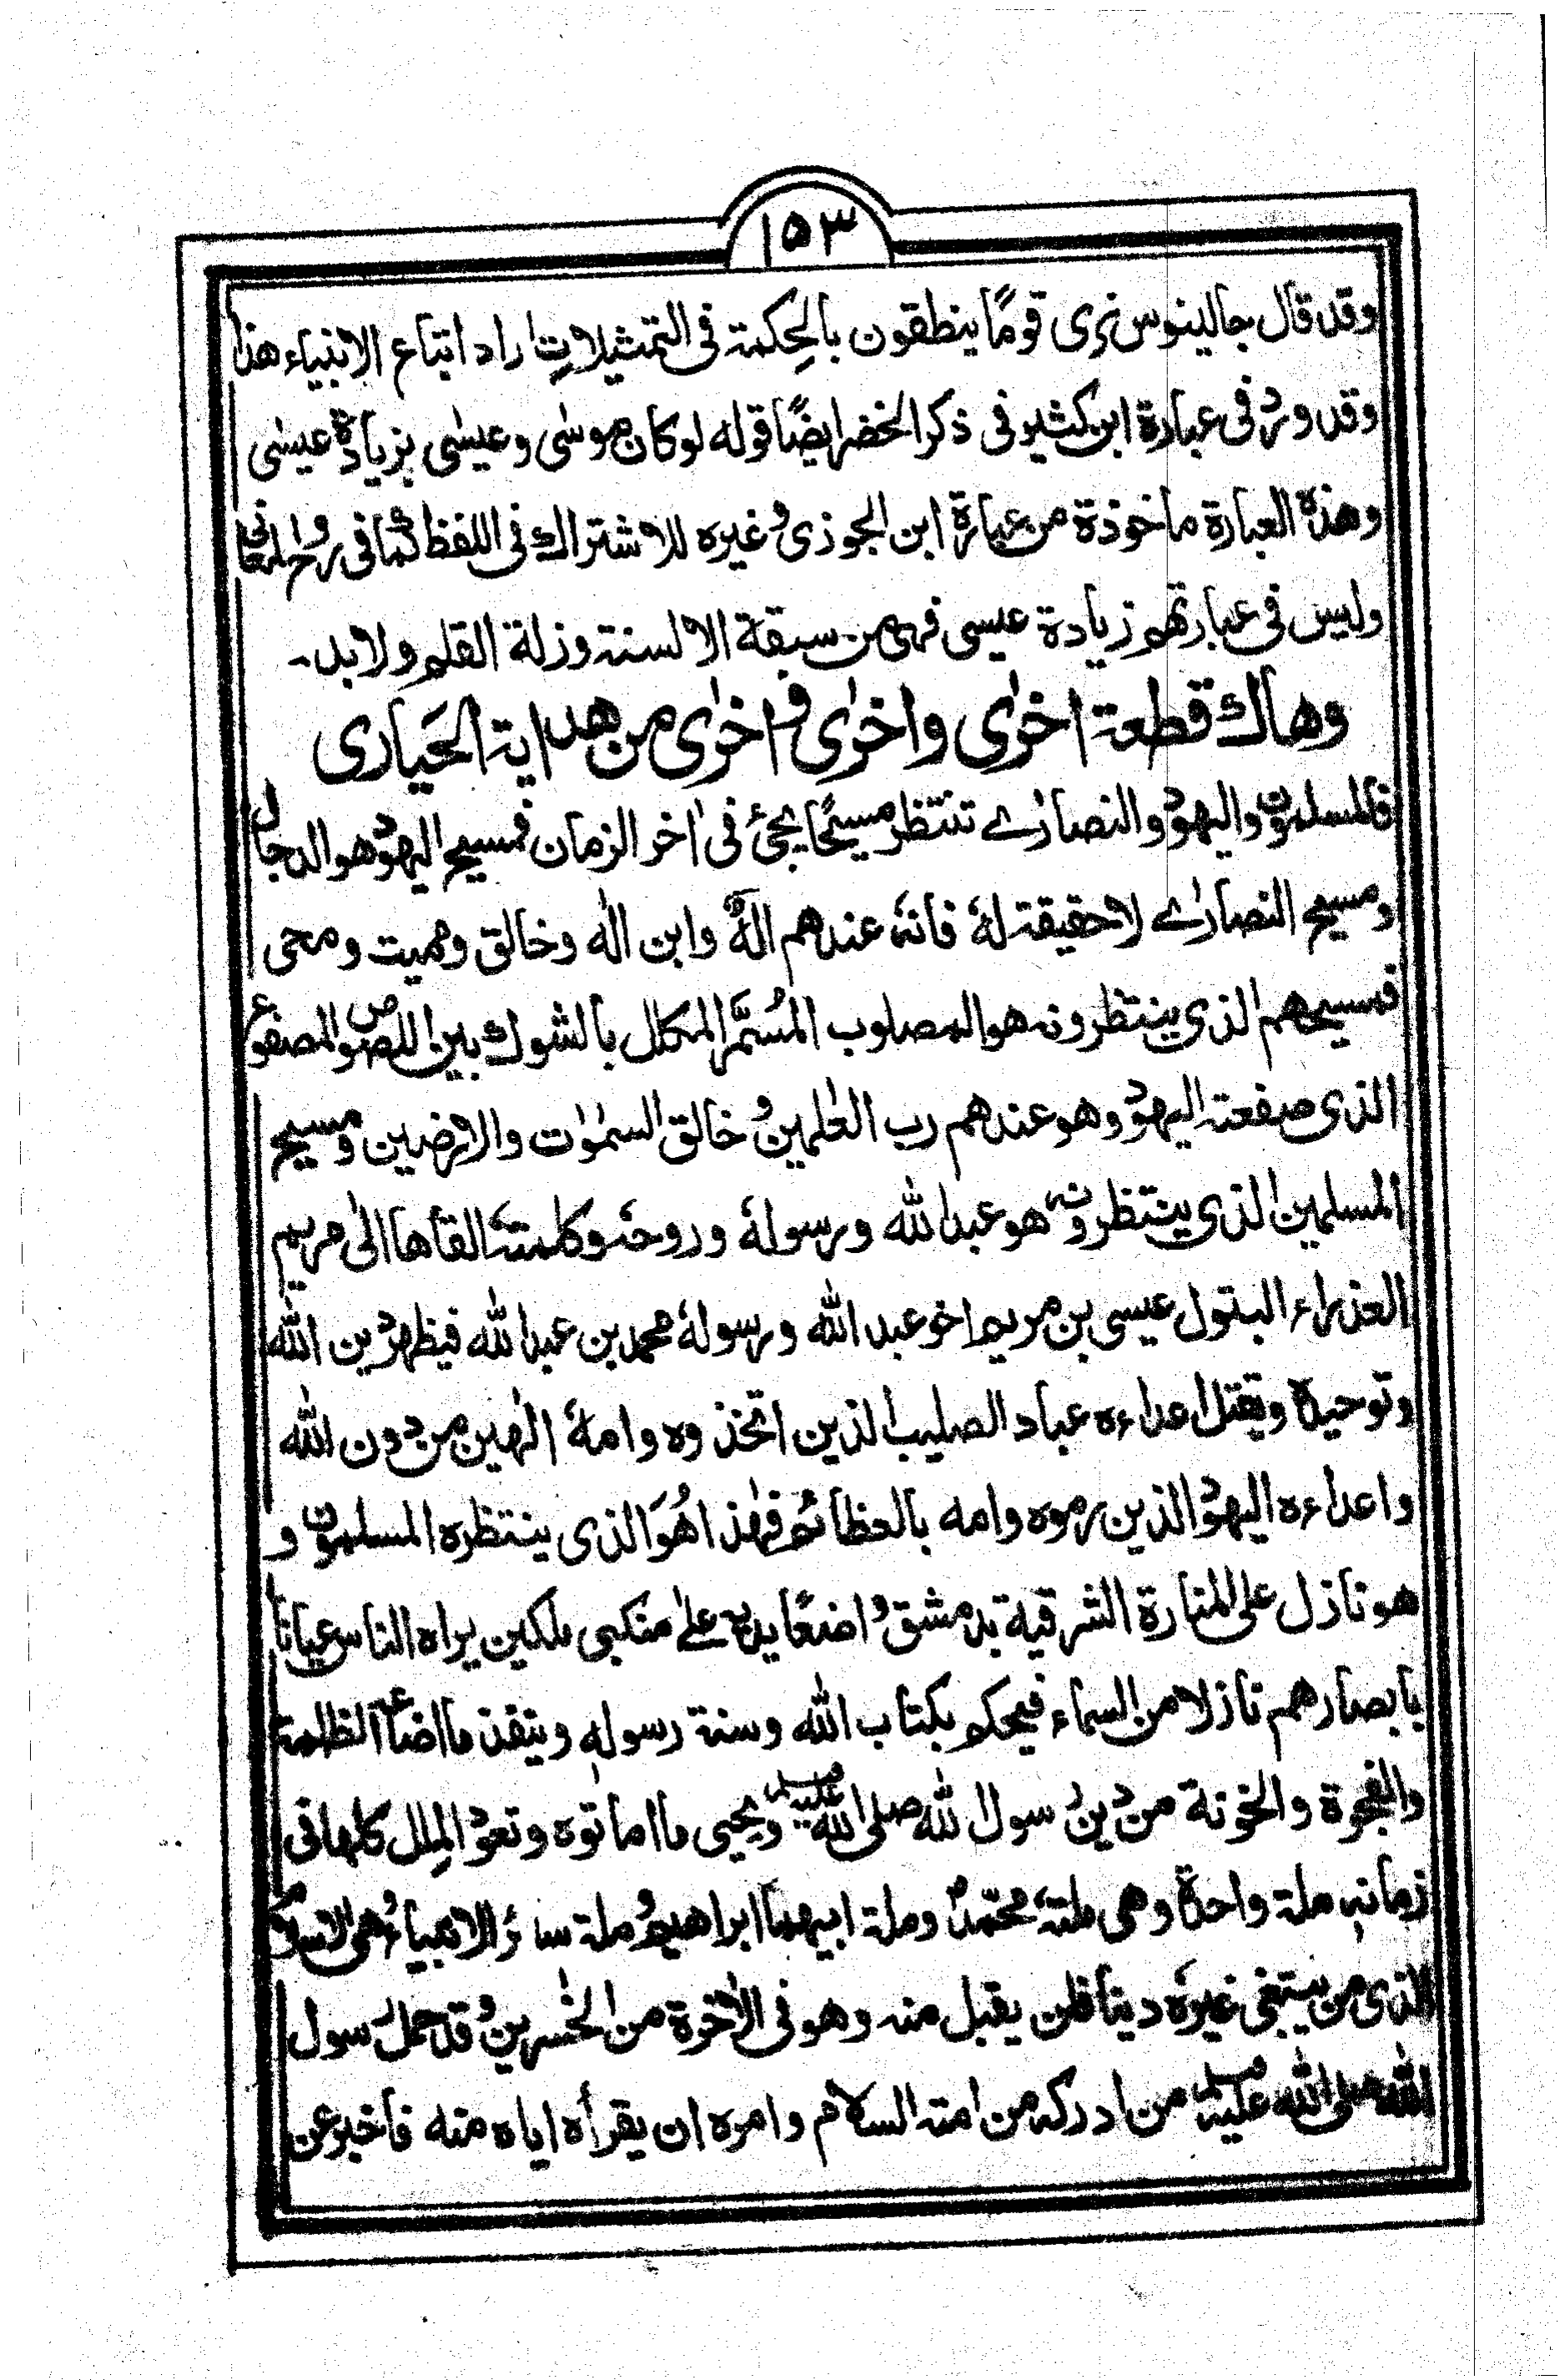 ١٥٣
وقد قال جالينوس نرى قومًا ينطقون بالحِكمة فى التمثيلاتِ اراد اتباع الانبياء هذا
وقد ورد فى عبارة ابن كثير فى ذكر الخضر ايضًا قوله لو كان موسٰى وعيسٰى بزيادة عيسٰى
وهذه العبارة ماخوذة من عبارة ابن الجوزى وغيره للاشتراك فى اللفظ كما فى روح المعانى
وليس فى عبارتهم زيادة عيسى فهى من سبقة الالسنة وزلة القلم ولابد۔
وهاك قطعة اخرٰى واخرٰى واخرٰى من هداية الحَيارى
فالمسلمون واليهود والنصارٰے تنتظر مسيحًا يجئ فى اٰخر الزمان فمسيح اليهود هو الدجال
ومسيح النصارٰے لاحقيقة لهٗ فانهٗ عندهم الٰهٌ وابن الٰه وخالق ومميت ومحى
فمسيحهم الذى ينتظرونه هو المصلوب المُسَمَّر المكلل بالشوك بين اللصوص المصفوع
الذى صفعته اليهود وهو عندهم رب العٰلمين وخالق السمٰوٰت والارضين ومسيح
المسلمين الذى ينتظرونه هو عبد الله ورسولهٗ وروحهٗ وكلمتهٗ القاها الٰى مريم
العذراء البتول عيسى بن مريم اخو عبد الله ورسولهٗ محمد بن عبد الله فيظهر دين الله
وتوحيدهٗ ويقتل اعداءه عباد الصليب الذين اتخذوه وامهٗ الٰهين من دون الله
واعداءه اليهود الذين رموه وامه بالعظائم فهٰذا هُوَ الذى ينتظره المسلمون و
هو نازل على المنارة الشرقية بدمشق واضعًا يديه علےٰ منكبى ملكين يراه الناس عيانًا
بابصارهم نازلا من السماء فيحكم بكتاب الله وسنة رسولهٖ وينفذ ما اضاعه الظلمة
والفجرة والخونة من دين رسول الله صلى الله عليه وسلم ويحيى ما اماتوه وتعود المِلل كلها فى
زمانهٖ ملة واحدة وهى ملتهٗ محمّدؐ وملة ابيهما ابراهيم وملة سائر الانبياء وهى الاسلام
الذى من يبتغى غيرهٗ دينا فلن يقبل منه وهو فى الاٰخرة من الخٰسرين وقد حمل رسول
الله صلى الله عليه وسلم من ادركه من امته السلام وامره ان يقرأه اياه منه فاخبر عن